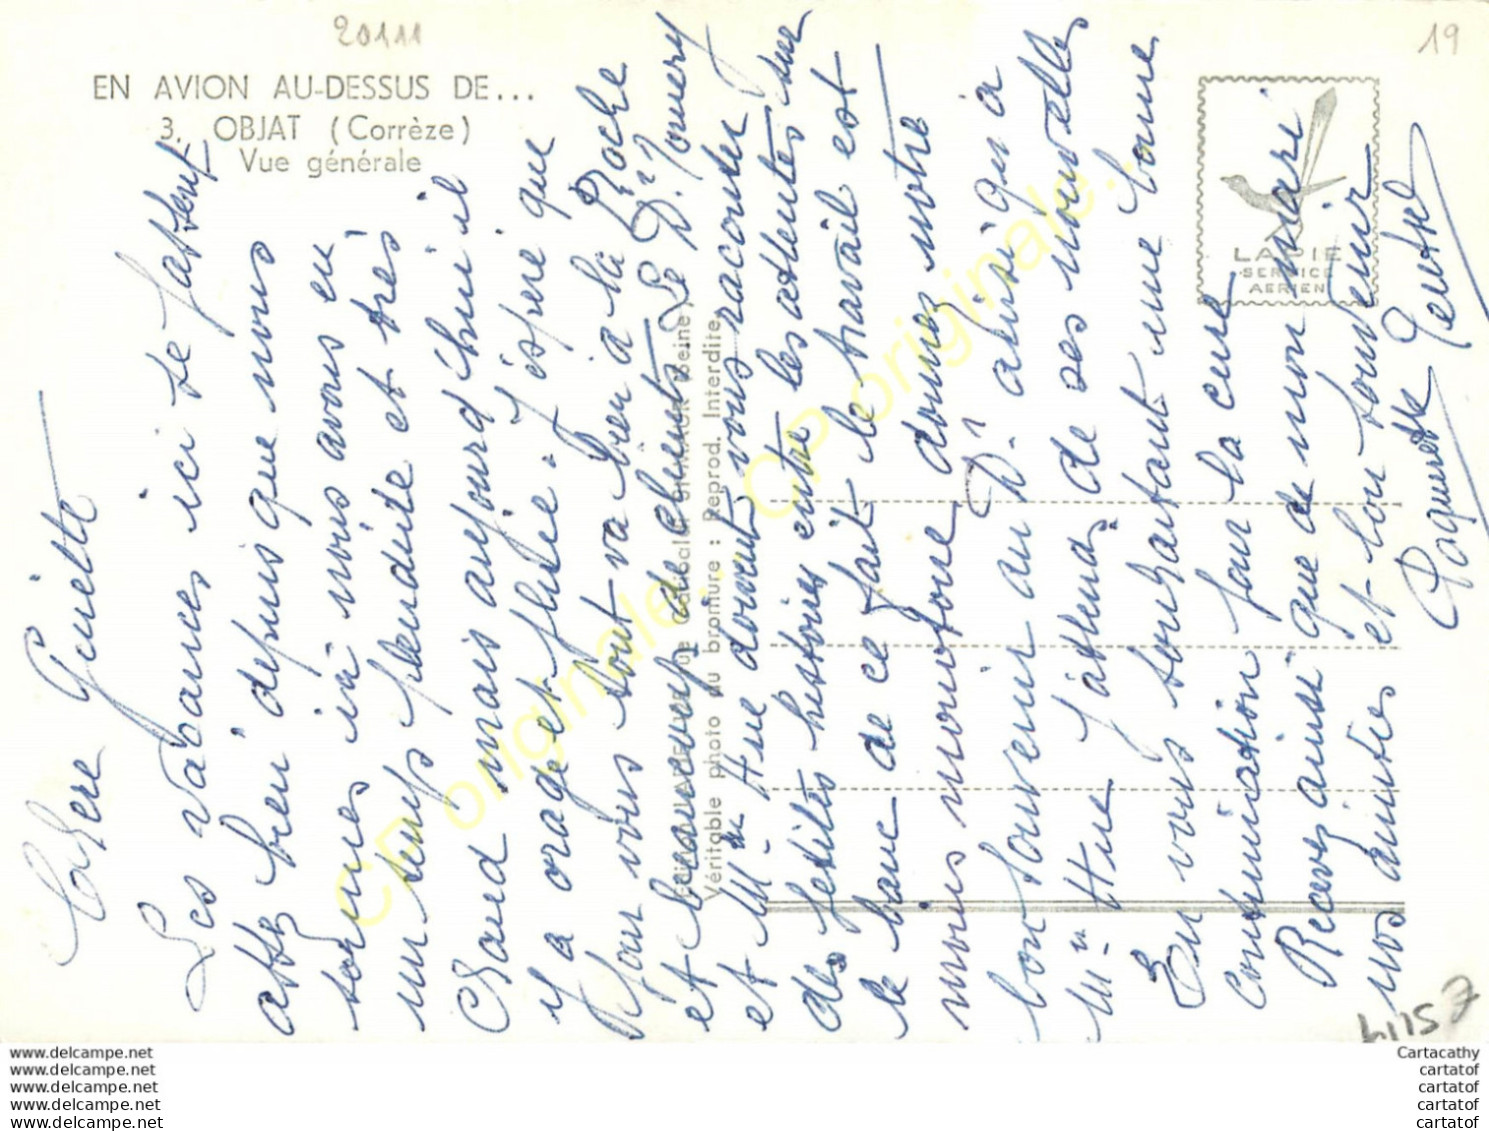 20111
19
EN AVION AU-DESSUS DE...
3. OBJAT (Corrèze)
Vue générale
LAPIE
SERVICE
AERIEN
Véritable photo au bromure : Reprod. Interdite
Chère Guiette
Les vacances ici se passent
assez bien depuis que nous
sommes ici nous avons eu
un temps splendide et très
chaud mais aujourd'hui il
y a orage et pluie. J'espère que
pour vous tout va bien à la Roche
et beaucoup de clients Le Dr
et Mme Hue doivent vous raconter
des petites histoires entre les attentes sur
le banc de ce fait le travail est
moins monotone, donnez notre
bon souvenir au Dr ainsi qu'à
Mme Hue j'attends de ses nouvelles
En vous souhaitant une bonne
continuation pour la cure
Recevez ainsi que de mon mari
nos amitiés et bon souvenir
Paquerette
CP originale... CP originale... CP originale...
www.delcampe.net
www.delcampe.net
www.delcampe.net
www.delcampe.net
www.delcampe.net
Cartacathy
cartatof
cartatof
cartatof
cartatof